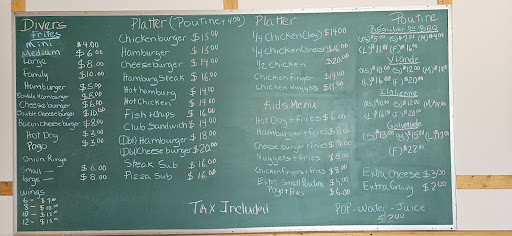 Divers
frites
mini $4.00
Medium $6.00
Large $8.00
Family $10.00
Hamburger $5.00
Double Hamburger $8.00
Cheese burger $6.00
Double Cheese burger $10.00
Bacon cheese burger $8.00
Hot Dog $3.00
Pogo $3.00
Onion Rings
small $6.00
large $8.00
wings
6 -
8 -
10 -
12 -
Platter (Poutine + 4.00)
Chicken burger $15.00
Hamburger $13.00
Cheese burger $14.00
Hamburg Steak $16.00
Hot hamburg $14.00
Hot Chicken $14.00
Fish + chips $16.00
Club Sandwich $14.00
(Dbl) Hamburger $18.00
(Dbl) Cheese burger $20.00
Steak Sub $16.00
Pizza Sub $16.00
Tax Included
Platter
1/4 Chicken (Leg) $14.00
1/4 Chicken (breast) $16.00
1/2 Chicken $20.00
Chicken finger $14.00
Chicken Nuggets $11.00
Kids Menu
Hot Dog + fries $6.00
Hamburger + fries $8.00
Cheese burger + fries $9.00
Nuggets + fries $8.00
Chicken fingers + fries $9.00
Extra Small Poutine
Pogo + fries $6.00
Poutine
Régulier ou BBQ
(XS) $5.00 (S) $7.00 (M) $9.00
(L) $11.00 (F) $16.00
Viande
(S) $12.00
(L) $16.00 (F) $20.00
Italienne
(S) $12.00
(L) $16.00 (F) $20.00
Galvaude
(F) $22.00
Extra Cheese $3.00
Extra Gravy $2.00
POP - Water - Juice
$2.00